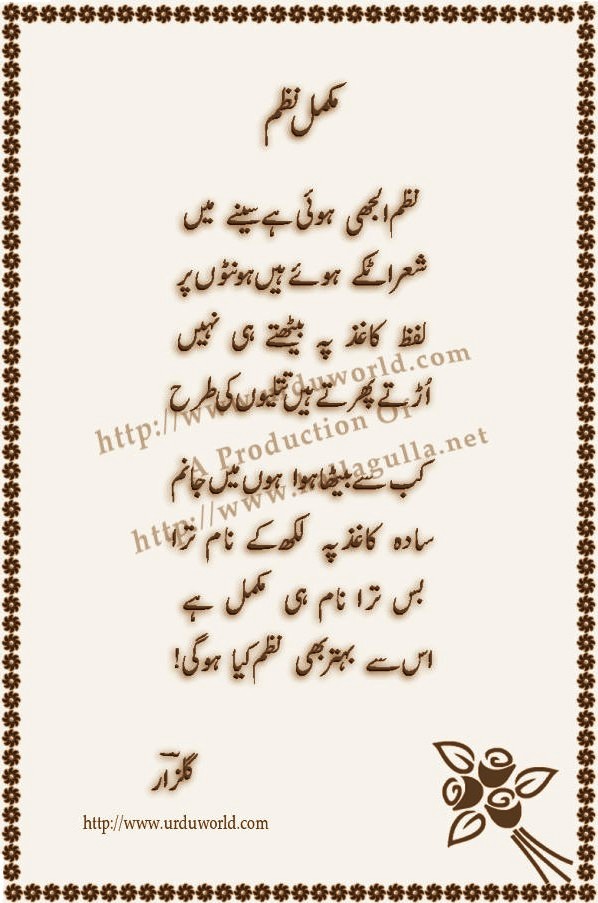 مکمل نظم
نظم الجھی ہوئی ہے سینے میں
شعر اٹکے ہوئے ہیں ہونٹوں پر
لفظ کاغذ پہ بیٹھتے ہی نہیں
اُڑتے پھرتے ہیں تتلیوں کی طرح
http://www.urduworld.com
A Production Of
کب سے بیٹھا ہوا ہوں میں جانم
http://www.
سادہ کاغذ پہ لکھ کے نام ترا
بس ترا نام ہی مکمل ہے
اس سے بہتر بھی نظم کیا ہوگی!
گلزار
http://www.urduworld.com